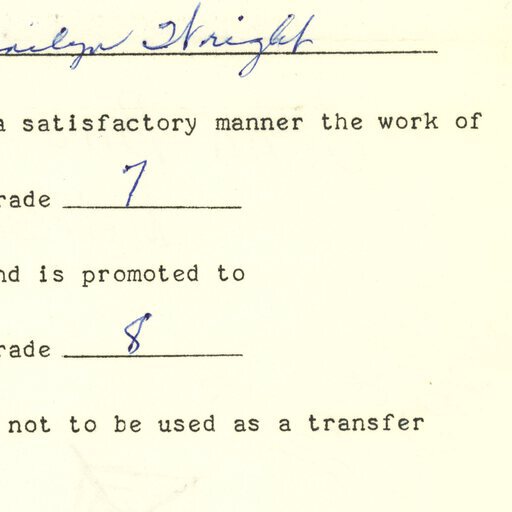 ailyn Wright
a satisfactory manner the work of
rade 7
nd is promoted to
rade 8
not to be used as a transfer